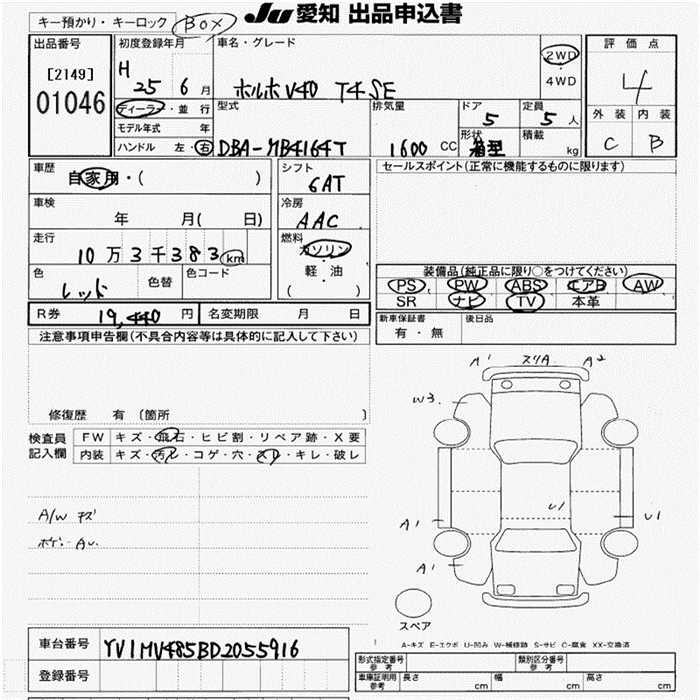 キー預かり・キーロック BOX
JU 愛知 出品申込書
出品番号
[2149]
01046
初度登録年月
H 25 6月
ディーラー・並行
モデル年式 年
ハンドル 左・右
車名・グレード
ボルボ V40 T4 SE
2WD
・
4WD
型式
DBA-MB4164T
排気量
1600 CC
ドア
5
定員
5人
形状
箱型
積載
kg
評価点
4
外装 内装
C B
車歴
自家用・( )
車検
年 月( 日)
走行
10万3千383km
色
レッド
色替
色コード
シフト
6AT
冷房
AAC
燃料
ガソリン
・
軽・油
( )
セールスポイント(正常に機能するものに限ります)
装備品(純正品に限り○をつけてください)
PS PW ABS エアB AW
SR ナビ TV 本革
R券 19,440円
名変期限 月 日
新車保証書
有・無
後日品
注意事項申告欄(不具合内容等は具体的に記入して下さい)
修復歴 有 〔箇所 〕
検査員
記入欄
FW キズ・飛石・ヒビ割・リペア跡・X要
内装 キズ・汚レ・コゲ・穴・スレ・キレ・破レ
A/W キズ
ボデー AU
A1 スリA A2
W3
U1
U1
A1
A1
スペア
A-キズ E-エクボ U-凹み W-補修跡 S-サビ C-腐食 XX-交換済
車台番号 YV1MV485BD2055916
登録番号
形式指定番号
参考
類別区分番号
参考
車庫証明用
参考
長さ cm
幅 cm
高さ cm